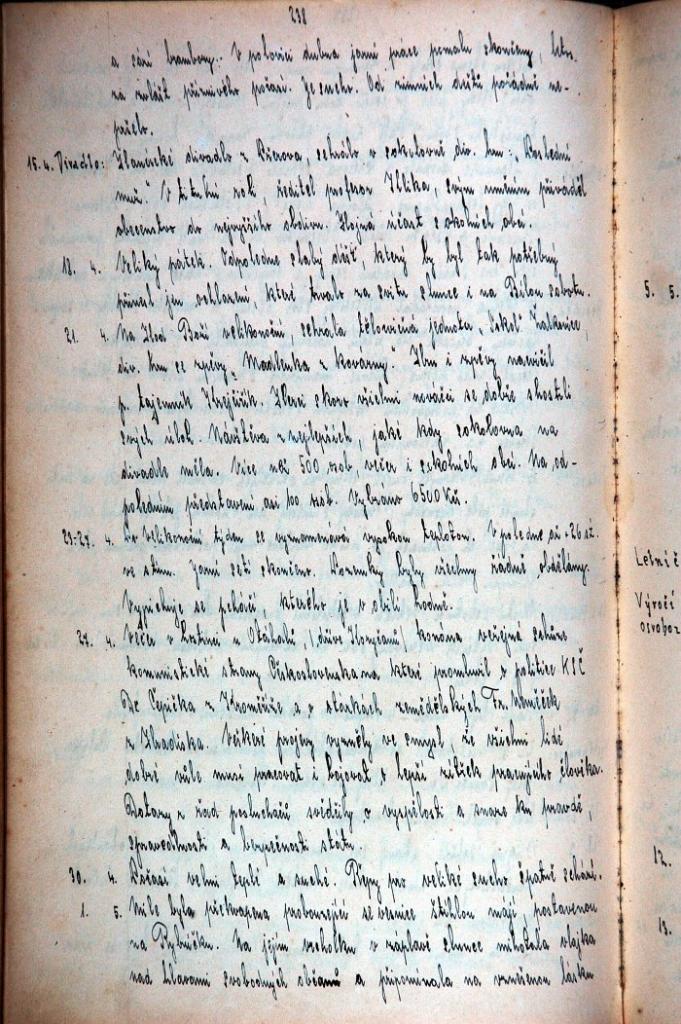 238
a sází brambory. V polovici dubna jarní práce pomalu skončeny, letos
za zvlášť příznivého počasí. Je sucho. Od zimních dešťů pořádně ne-
pršelo.
15. 4. Divadlo: Hanácké divadlo z Přerova, sehrálo v sokolovně div. hru: „Poslední
muž." V titulní roli, ředitel profesor Hlika, svým uměním přiváděl
obecenstvo do nejvyššího obdivu. Hojná účast z okolních obcí.
18. 4. Veliký pátek. Odpoledne slabý déšť, který by byl tak potřebný
přinesl jen ochlazení, které trvalo za svitu slunce i na Bílou sobotu.
21. 4. Na Hod Boží velikonoční, sehrála tělocvičná jednota „Sokol" Žalkovice,
div. hru se zpěvy „Madlenka z kovárny". Hru i zpěvy nacvičil
p. tajemník Krejčiřík. Herci skoro všichni nováčci se dobře zhostili
svých úloh. Návštěva z nejlepších, jaké kdy sokolovna na
divadle měla. Více než 500 osob, večer i z okolních obcí. Na od-
poledním představení asi 100 osob. Vybráno 6500 Kčs.
23.-27. 4. Po Velikonoční týden se vyznamenává vysokou teplotou. V poledne až +26 st.
ve stínu. Jarní setí skončeno. Pozemky byly všechny řádně obdělány.
Vypichuje se pcháčí, kterého je v obilí hodně.
27. 4. Večer v hostinci u Otáhalů, (dříve Horýčanů) konána veřejná schůze
komunistické strany Československa na které promluvil o politice KSČ
Dr. Čepička z Kroměříže a o otázkách zemědělských Fr. Němeček
z Hradiska. Veškeré projevy vyzněly ve smysl, že všichni lidé
dobré vůle musí pracovat i bojovat o lepší zítřek pracujícího člověka.
Dotazy z řad posluchačů svědčily o vyspělosti a snaze ku pravdě,
spravedlnosti a bezpečnosti státu.
30. 4. Počasí velmi teplé a suché. Řepy pro veliké sucho špatně schází.
1. 5. Mile byla překvapena probouzející se vesnice štíhlou májí, postavenou
na Rybníčku. Na jejím vrcholku v záplavě slunce mihotala vlajka
nad hlavami svobodných občanů a připomínala na vznešenou lásku
5. 5.
Letnič
Výročí
osvoboz
12.
13.